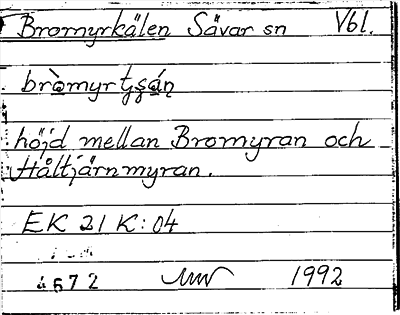 Bromyrkälen Sävar sn Vbl.
bròmyrtʂʂáņ
höjd mellan Bromyran och
Håltjärnmyran.
EK 21 K:04
4672 1992